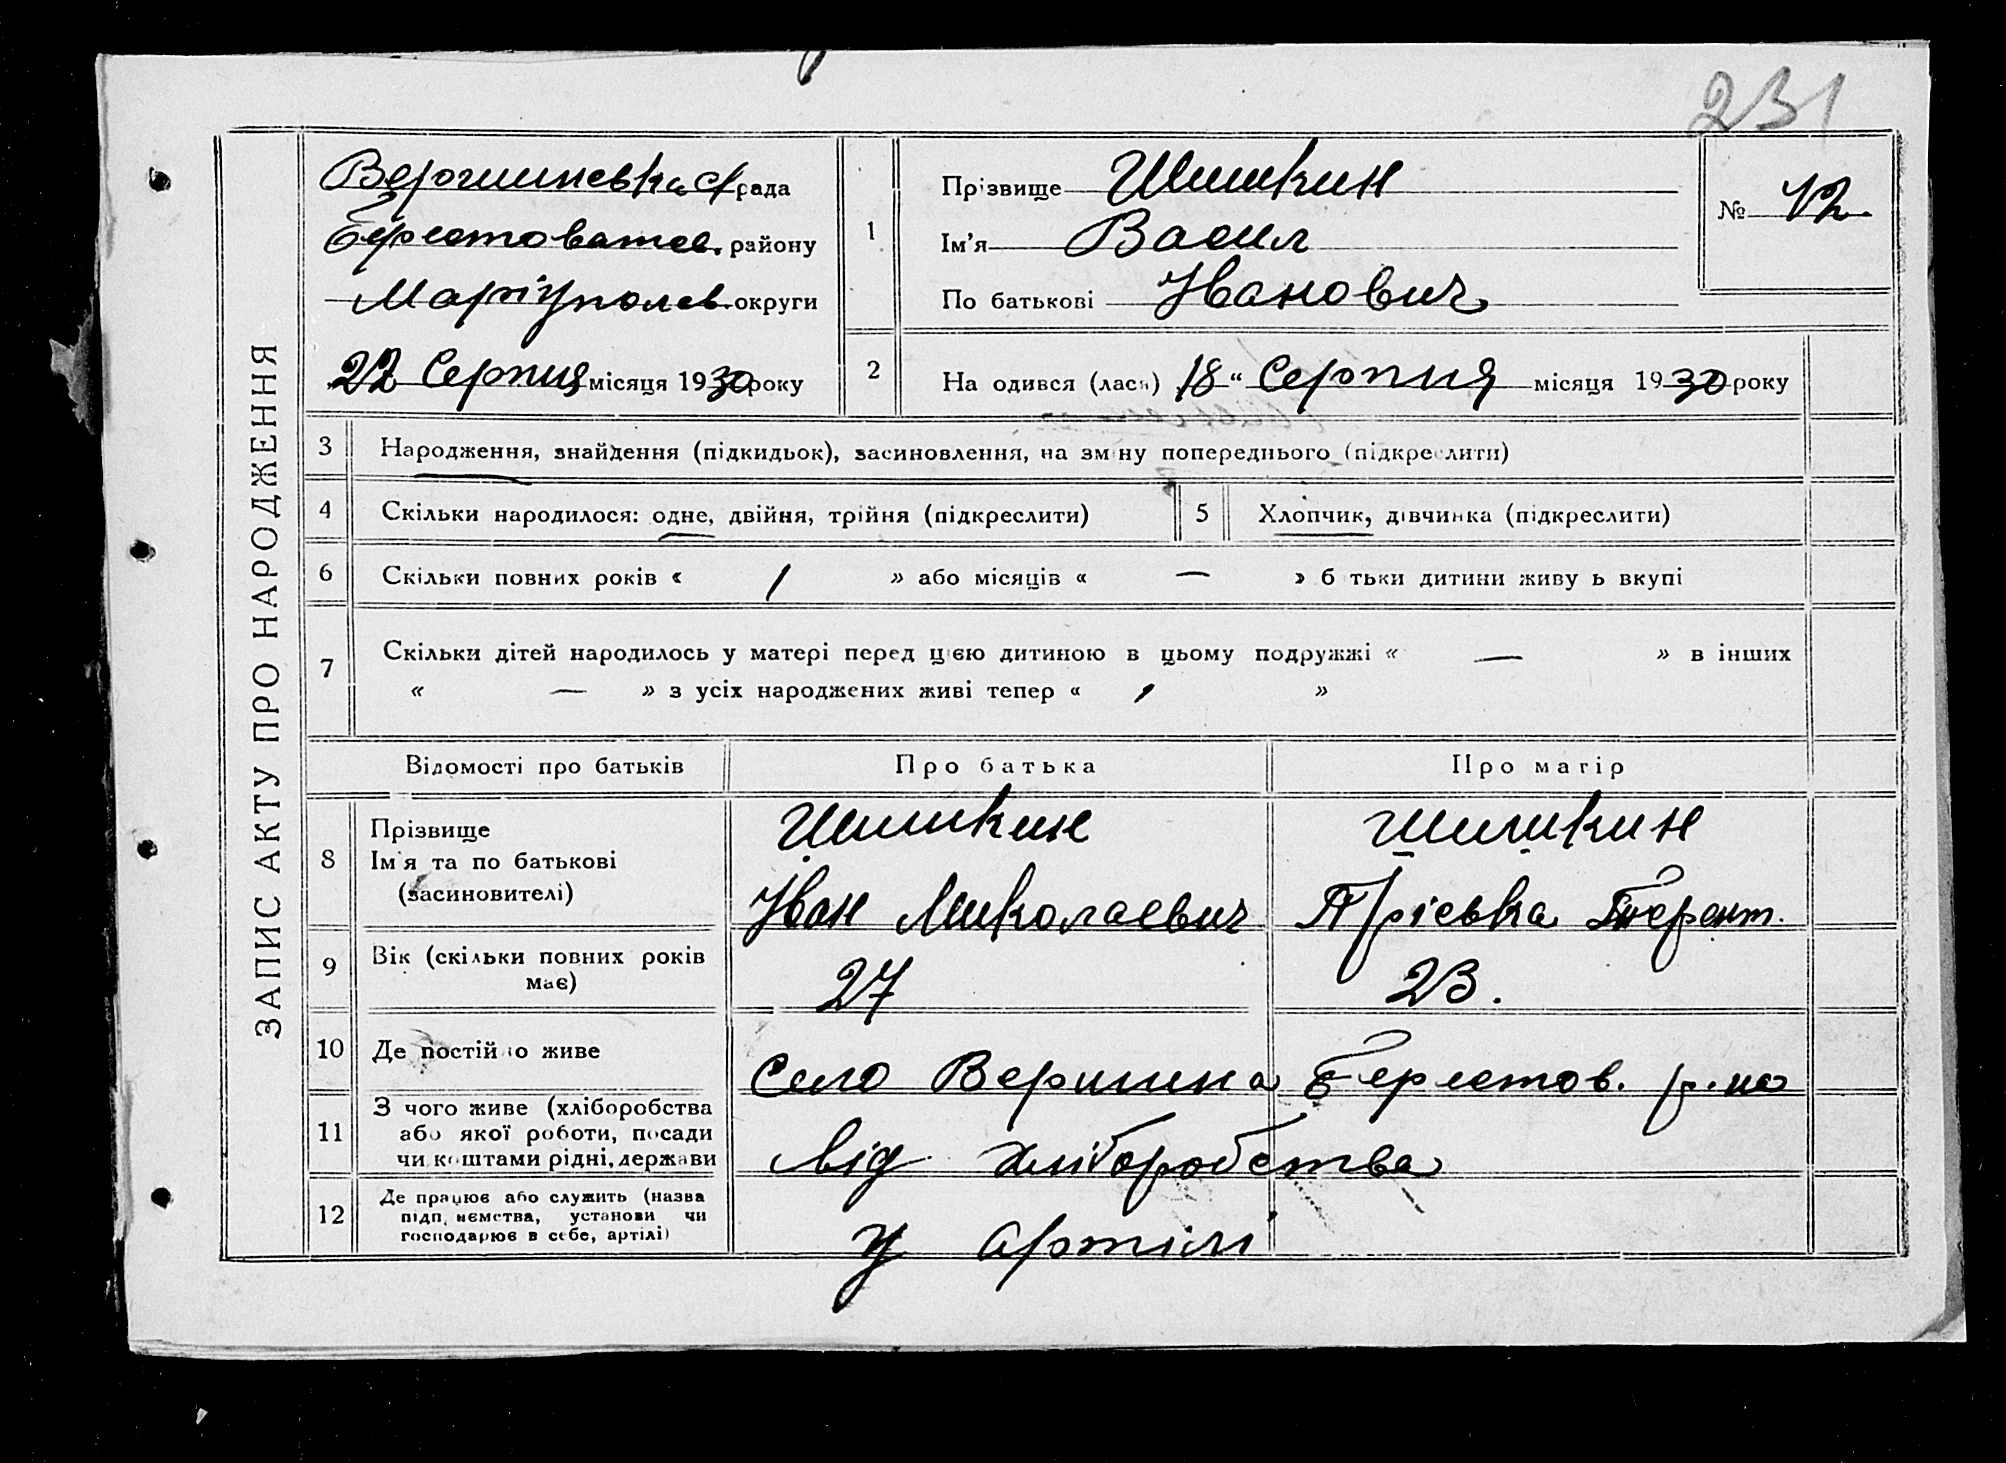 231
ЗАПИС АКТУ ПРО НАРОДЖЕННЯ
Вершиневка с/рада
Берестоватов. району
Маріуполев округи
22 Серпня місяця 1930 року
1
Прізвище Шишкин
Ім'я Васил
По батькові Іванович
№ 42.
2
На одився (лась) 18 " Серпня місяця 1930 року
3 Народження, знайдення (підкидьок), засиновлення, на зміну попереднього (підкреслити)
4 Скільки народилося: одне, двійня, трійня (підкреслити)
5 Хлопчик, дівчинка (підкреслити)
6 Скільки повних років « 1 » або місяців « — » б тьки дитини живу ь вкупі
7 Скільки дітей народилось у матері перед цією дитиною в цьому подружжі « — » в інших
« — » з усіх народжених живі тепер « 1 »
Відомості про батьків Про батька Про матір
8 Прізвище
Ім'я та по батькові
(засиновителі)
Шишкин
Іван Миколаевич
Шишкин
Пріська Терент.
9 Вік (скільки повних років
має)
27 23.
10 Де постійно живе
Село Вершина Берестов. р.на
11 З чого живе (хліборобства
або якої роботи, посади
чи коштами рідні, держави
від хліборобства
12 Де працює або служить (назва
підп, иємства, установи чи
господарює в себе, артілі)
у артілі